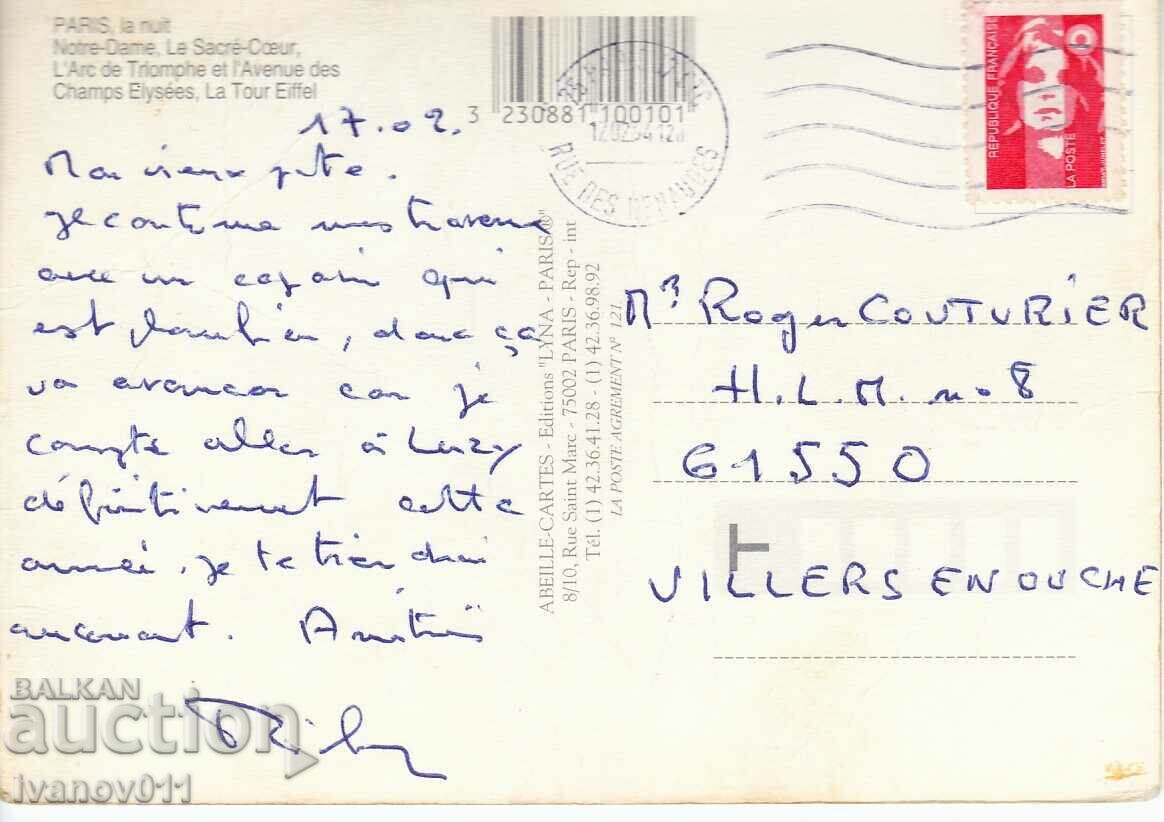 PARIS, la nuit
Notre-Dame, Le Sacré-Cœur,
L'Arc de Triomphe et l'Avenue des
Champs Elysées, La Tour Eiffel
3 230881 100101
17.02.
Mon vieux pote.
Je continue mes travaux
avec un copain qui
est , donc ça
va avancer car je
compte aller à Luzy
définitivement cette
année. je te tiendrai
au courant. Amitiés
ABEILLE-CARTES - Editions "LYNA - PARIS ®"
8/10, Rue Saint Marc - 75002 PARIS - Rep - int
Tél. (1) 42.36.41.28 - (1) 42.36.98.92
LA POSTE AGREMENT N° 121
RUE DES RENAUDES
RÉPUBLIQUE FRANÇAISE
LA POSTE
Mr Roger COUTURIER
H.L.M. no 8
61550
VILLERS EN OUCHE
BALKAN
auction
ivanov011